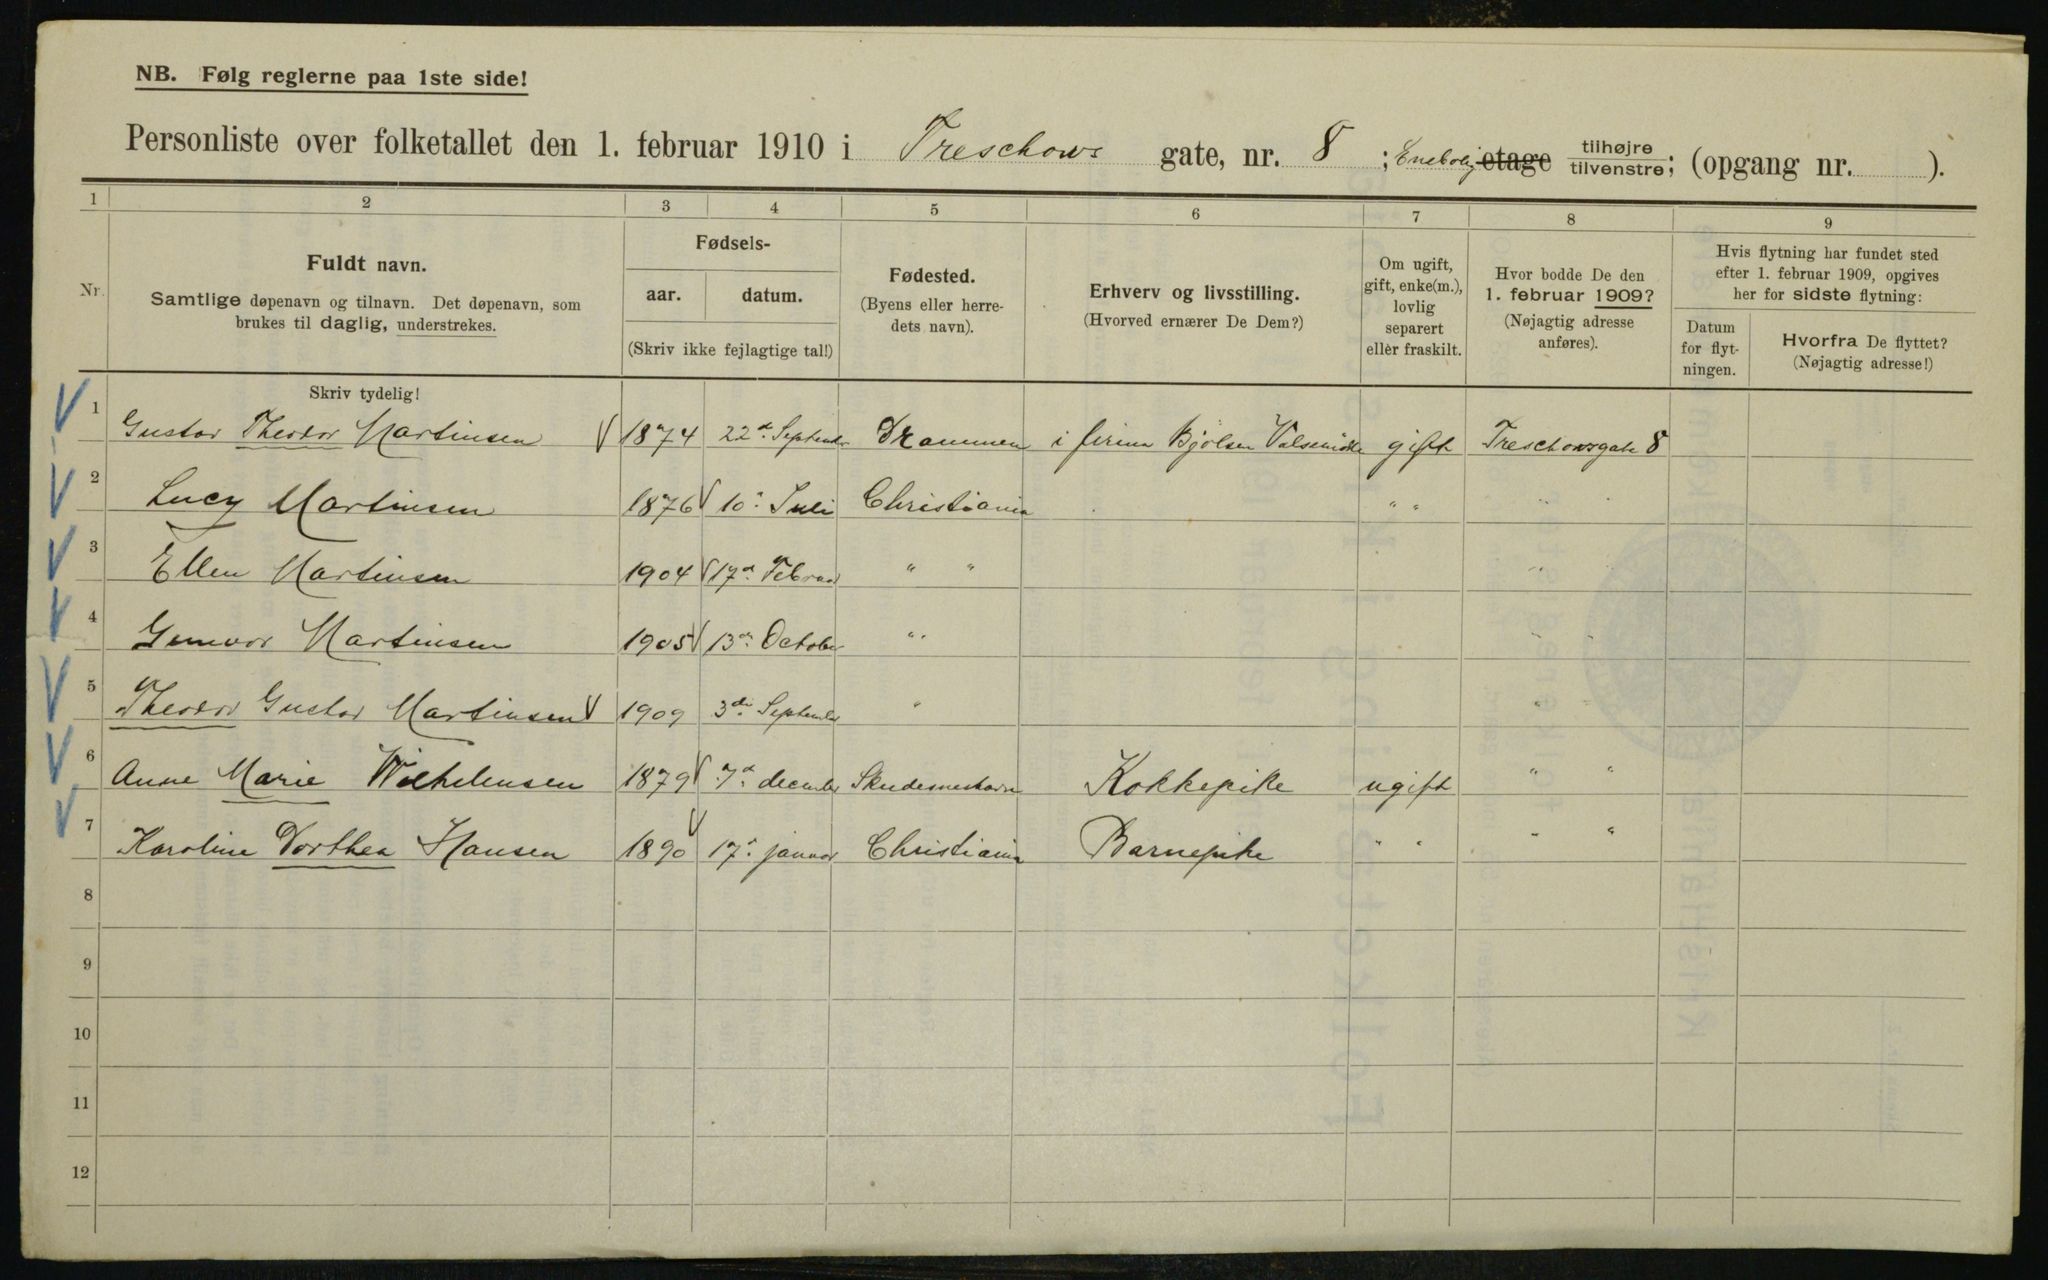 NB. Følg reglerne paa 1ste side!
Personliste over folketallet den 1. februar 1910 i Treschows gate, nr. 8 ; Enebolig etage tilhøjre/tilvenstre; (opgang nr. ).
1 2 3 4 5 6 7 8 9
Nr.
Fuldt navn.
Samtlige døpenavn og tilnavn. Det døpenavn, som
brukes til daglig, understrekes.
Fødsels-
aar. datum.
(Skriv ikke fejlagtige tal!)
Fødested.
(Byens eller herre-
dets navn).
Erhverv og livsstilling.
(Hvorved ernærer De Dem?)
Om ugift,
gift, enke(m.),
lovlig
separert
ellèr fraskilt.
Hvor bodde De den
1. februar 1909?
(Nøjagtig adresse
anføres).
Hvis flytning har fundet sted
efter 1. februar 1909, opgives
her for sidste flytning:
Datum
for flyt-
ningen.
Hvorfra De flyttet?
(Nøjagtig adresse!)
Skriv tydelig!
1 Gustav Theodor Martinsen 1874 22d. September Drammen i firma Bjølsen Valsemølle gift Treschowsgate 8
2 Lucy Martinsen 1876 10. Juli Christiania " " " "
3 Ellen Martinsen 1904 17d. Februar " " " "
4 Gunvor Martinsen 1905 13de October " " " "
5 Theodor Gustav Martinsen 1909 3di September " " "
6 Anne Marie Wilhelmsen 1879 7d. december Skudesneshavn Kokkepike ugift " "
7 Karoline Dorthea Hansen 1890 17. januar Christiania Barnepike " " " "
8
9
10
11
12